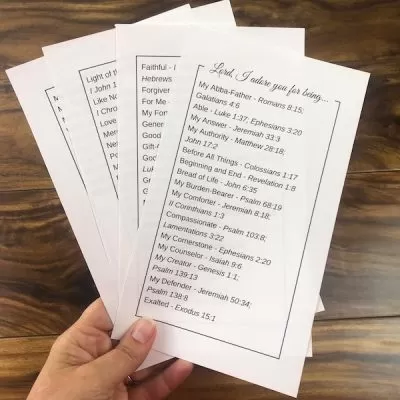 Lord, I adore you for being...
My Abba-Father - Romans 8:15;
Galatians 4:6
Able - Luke 1:37; Ephesians 3:20
My Answer - Jeremiah 33:3
My Authority - Matthew 28:18;
John 17:2
Before All Things - Colossians 1:17
Beginning and End - Revelation 1:8
Bread of Life - John 6:35
My Burden-Bearer - Psalm 68:19
My Comforter - Jeremiah 8:18;
II Corinthians 1:3
Compassionate - Psalm 103:8;
Lamentations 3:22
My Cornerstone - Ephesians 2:20
My Counselor - Isaiah 9:6
My Creator - Genesis 1:1;
Psalm 139:13
My Defender - Jeremiah 50:34;
Psalm 138:8
Exalted - Exodus 15:1
Faithful - I
Hebrews
Forgiver
For Me -
My For
Gener
Good
Gift-
God
Light of th
I John 1
Like No
I Chro
Love
Mer